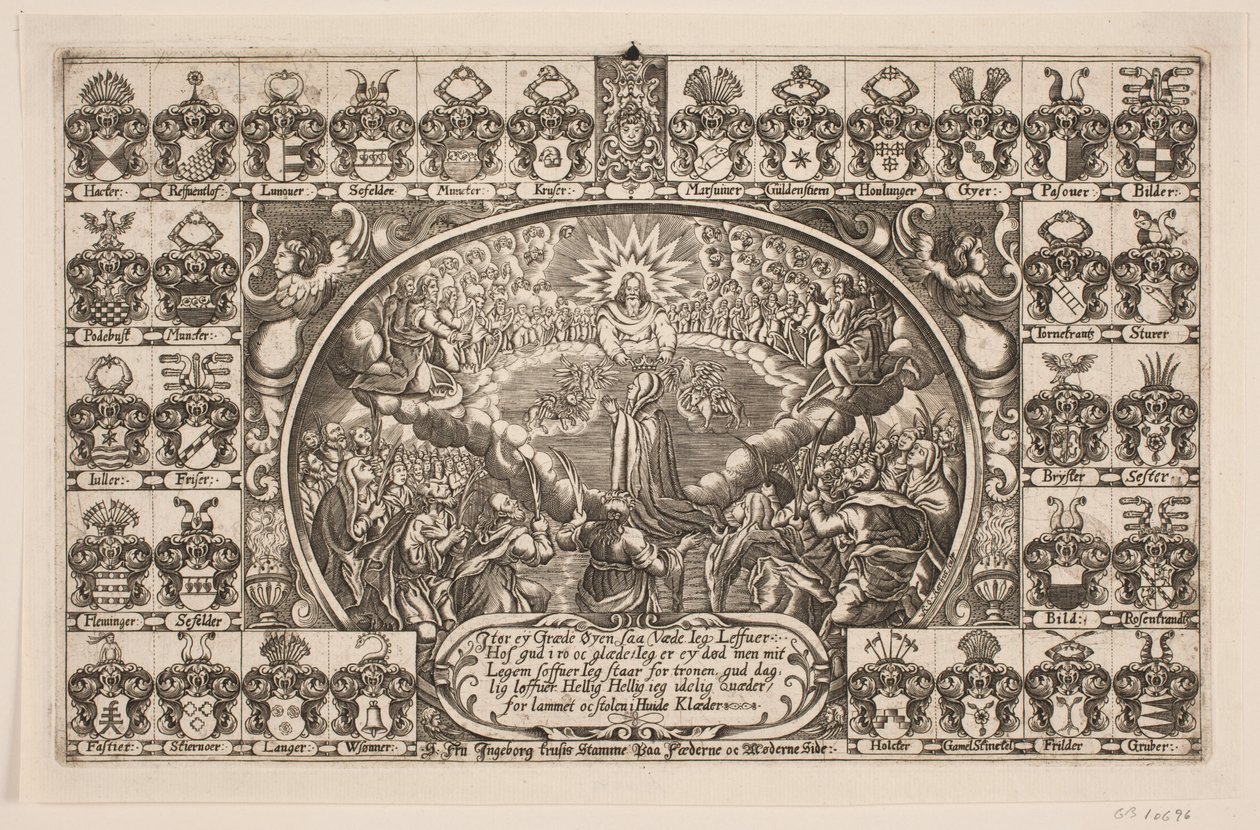 Hacker:·
Reffuentlof:
Lunouer:·
Sefelder
Muncter:·
Kruser:·
Marsuiner
Güldenstiern
Houlunger
Gyer:·
Pasouer:·
Bilder:·
Podebust
Muncter:·
Tornekrants
Sturer
Iuller:·
Friser:·
Bryster
Sester:·
Fleminger:·
Sefelder
Bild:·
Rosentrands
Fastier:·
Stiernoer:·
Langer:·
Wsonner:·
Holcter
Gamel Skinckel
Frilder
Gruber:·
Itor ey Græde Øyen, saa Væde. Ieg Leffuer:·:·
Hos gud i ro oc glæde: Ieg er ey død men mit
Legem soffuer Ieg staar for tronen, gud dag:
lig løffuer Hellig Hellig ieg idelig Quæder/
for lammet oc stolen i Huide Klæder
S. Fru Ingeborg krusis Stamme Paa Fæderne oc Møderne Side:·
GB 10696